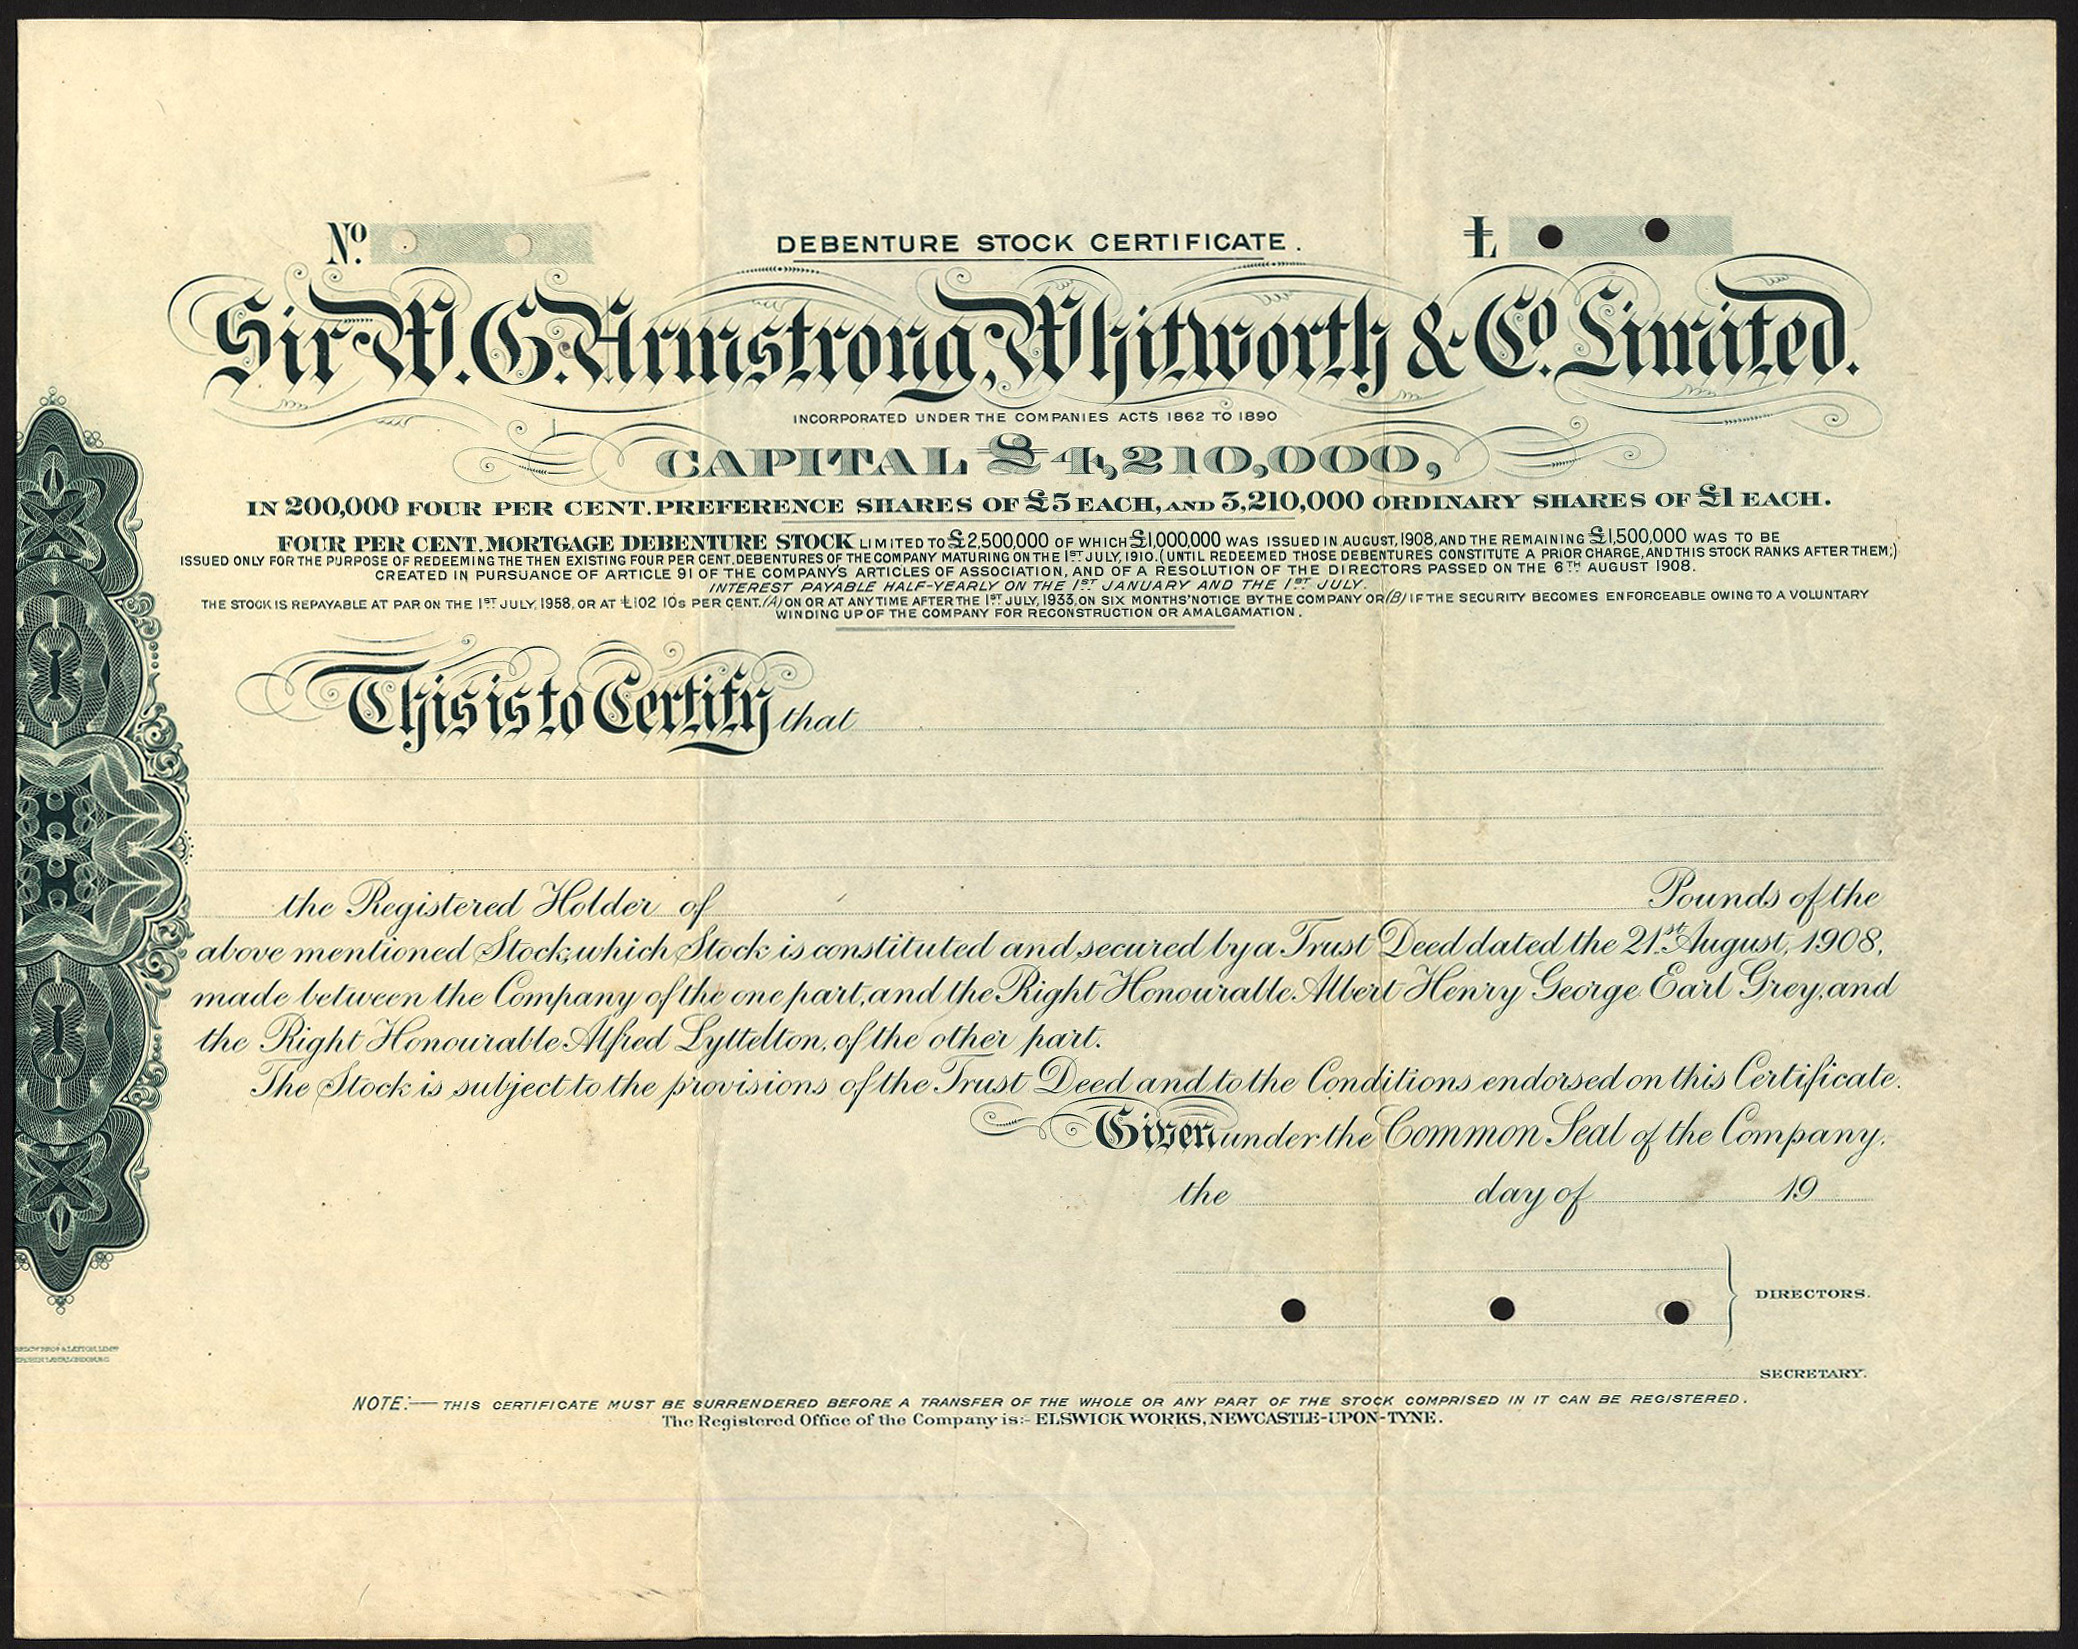 No. DEBENTURE STOCK CERTIFICATE. £
Sir W. G. Armstrong, Whitworth & Co. Limited.
INCORPORATED UNDER THE COMPANIES ACTS 1862 TO 1890
CAPITAL £4,210,000,
IN 200,000 FOUR PER CENT. PREFERENCE SHARES OF £5 EACH, AND 3,210,000 ORDINARY SHARES OF £1 EACH.
FOUR PER CENT. MORTGAGE DEBENTURE STOCK LIMITED TO £2,500,000 OF WHICH £1,000,000 WAS ISSUED IN AUGUST, 1908, AND THE REMAINING £1,500,000 WAS TO BE
ISSUED ONLY FOR THE PURPOSE OF REDEEMING THE THEN EXISTING FOUR PER CENT. DEBENTURES OF THE COMPANY MATURING ON THE 1ST JULY, 1910. (UNTIL REDEEMED THOSE DEBENTURES CONSTITUTE A PRIOR CHARGE, AND THIS STOCK RANKS AFTER THEM;)
CREATED IN PURSUANCE OF ARTICLE 91 OF THE COMPANY'S ARTICLES OF ASSOCIATION, AND OF A RESOLUTION OF THE DIRECTORS PASSED ON THE 6TH AUGUST 1908.
INTEREST PAYABLE HALF-YEARLY ON THE 1ST JANUARY AND THE 1ST JULY.
THE STOCK IS REPAYABLE AT PAR ON THE 1ST JULY, 1958, OR AT £102 10s PER CENT. (A) ON OR AT ANY TIME AFTER THE 1ST JULY, 1933, ON SIX MONTHS' NOTICE BY THE COMPANY OR (B) IF THE SECURITY BECOMES ENFORCEABLE OWING TO A VOLUNTARY
WINDING UP OF THE COMPANY FOR RECONSTRUCTION OR AMALGAMATION.
This is to Certify that
the Registered Holder of Pounds of the
above mentioned Stock, which Stock is constituted and secured by a Trust Deed dated the 21st August, 1908,
made between the Company of the one part, and the Right Honourable Albert Henry George Earl Grey, and
the Right Honourable Alfred Lyttelton, of the other part.
The Stock is subject to the provisions of the Trust Deed and to the Conditions endorsed on this Certificate.
Given under the Common Seal of the Company,
the day of 19
DIRECTORS.
SECRETARY.
NOTE:— THIS CERTIFICATE MUST BE SURRENDERED BEFORE A TRANSFER OF THE WHOLE OR ANY PART OF THE STOCK COMPRISED IN IT CAN BE REGISTERED.
The Registered Office of the Company is:- ELSWICK WORKS, NEWCASTLE-UPON-TYNE.